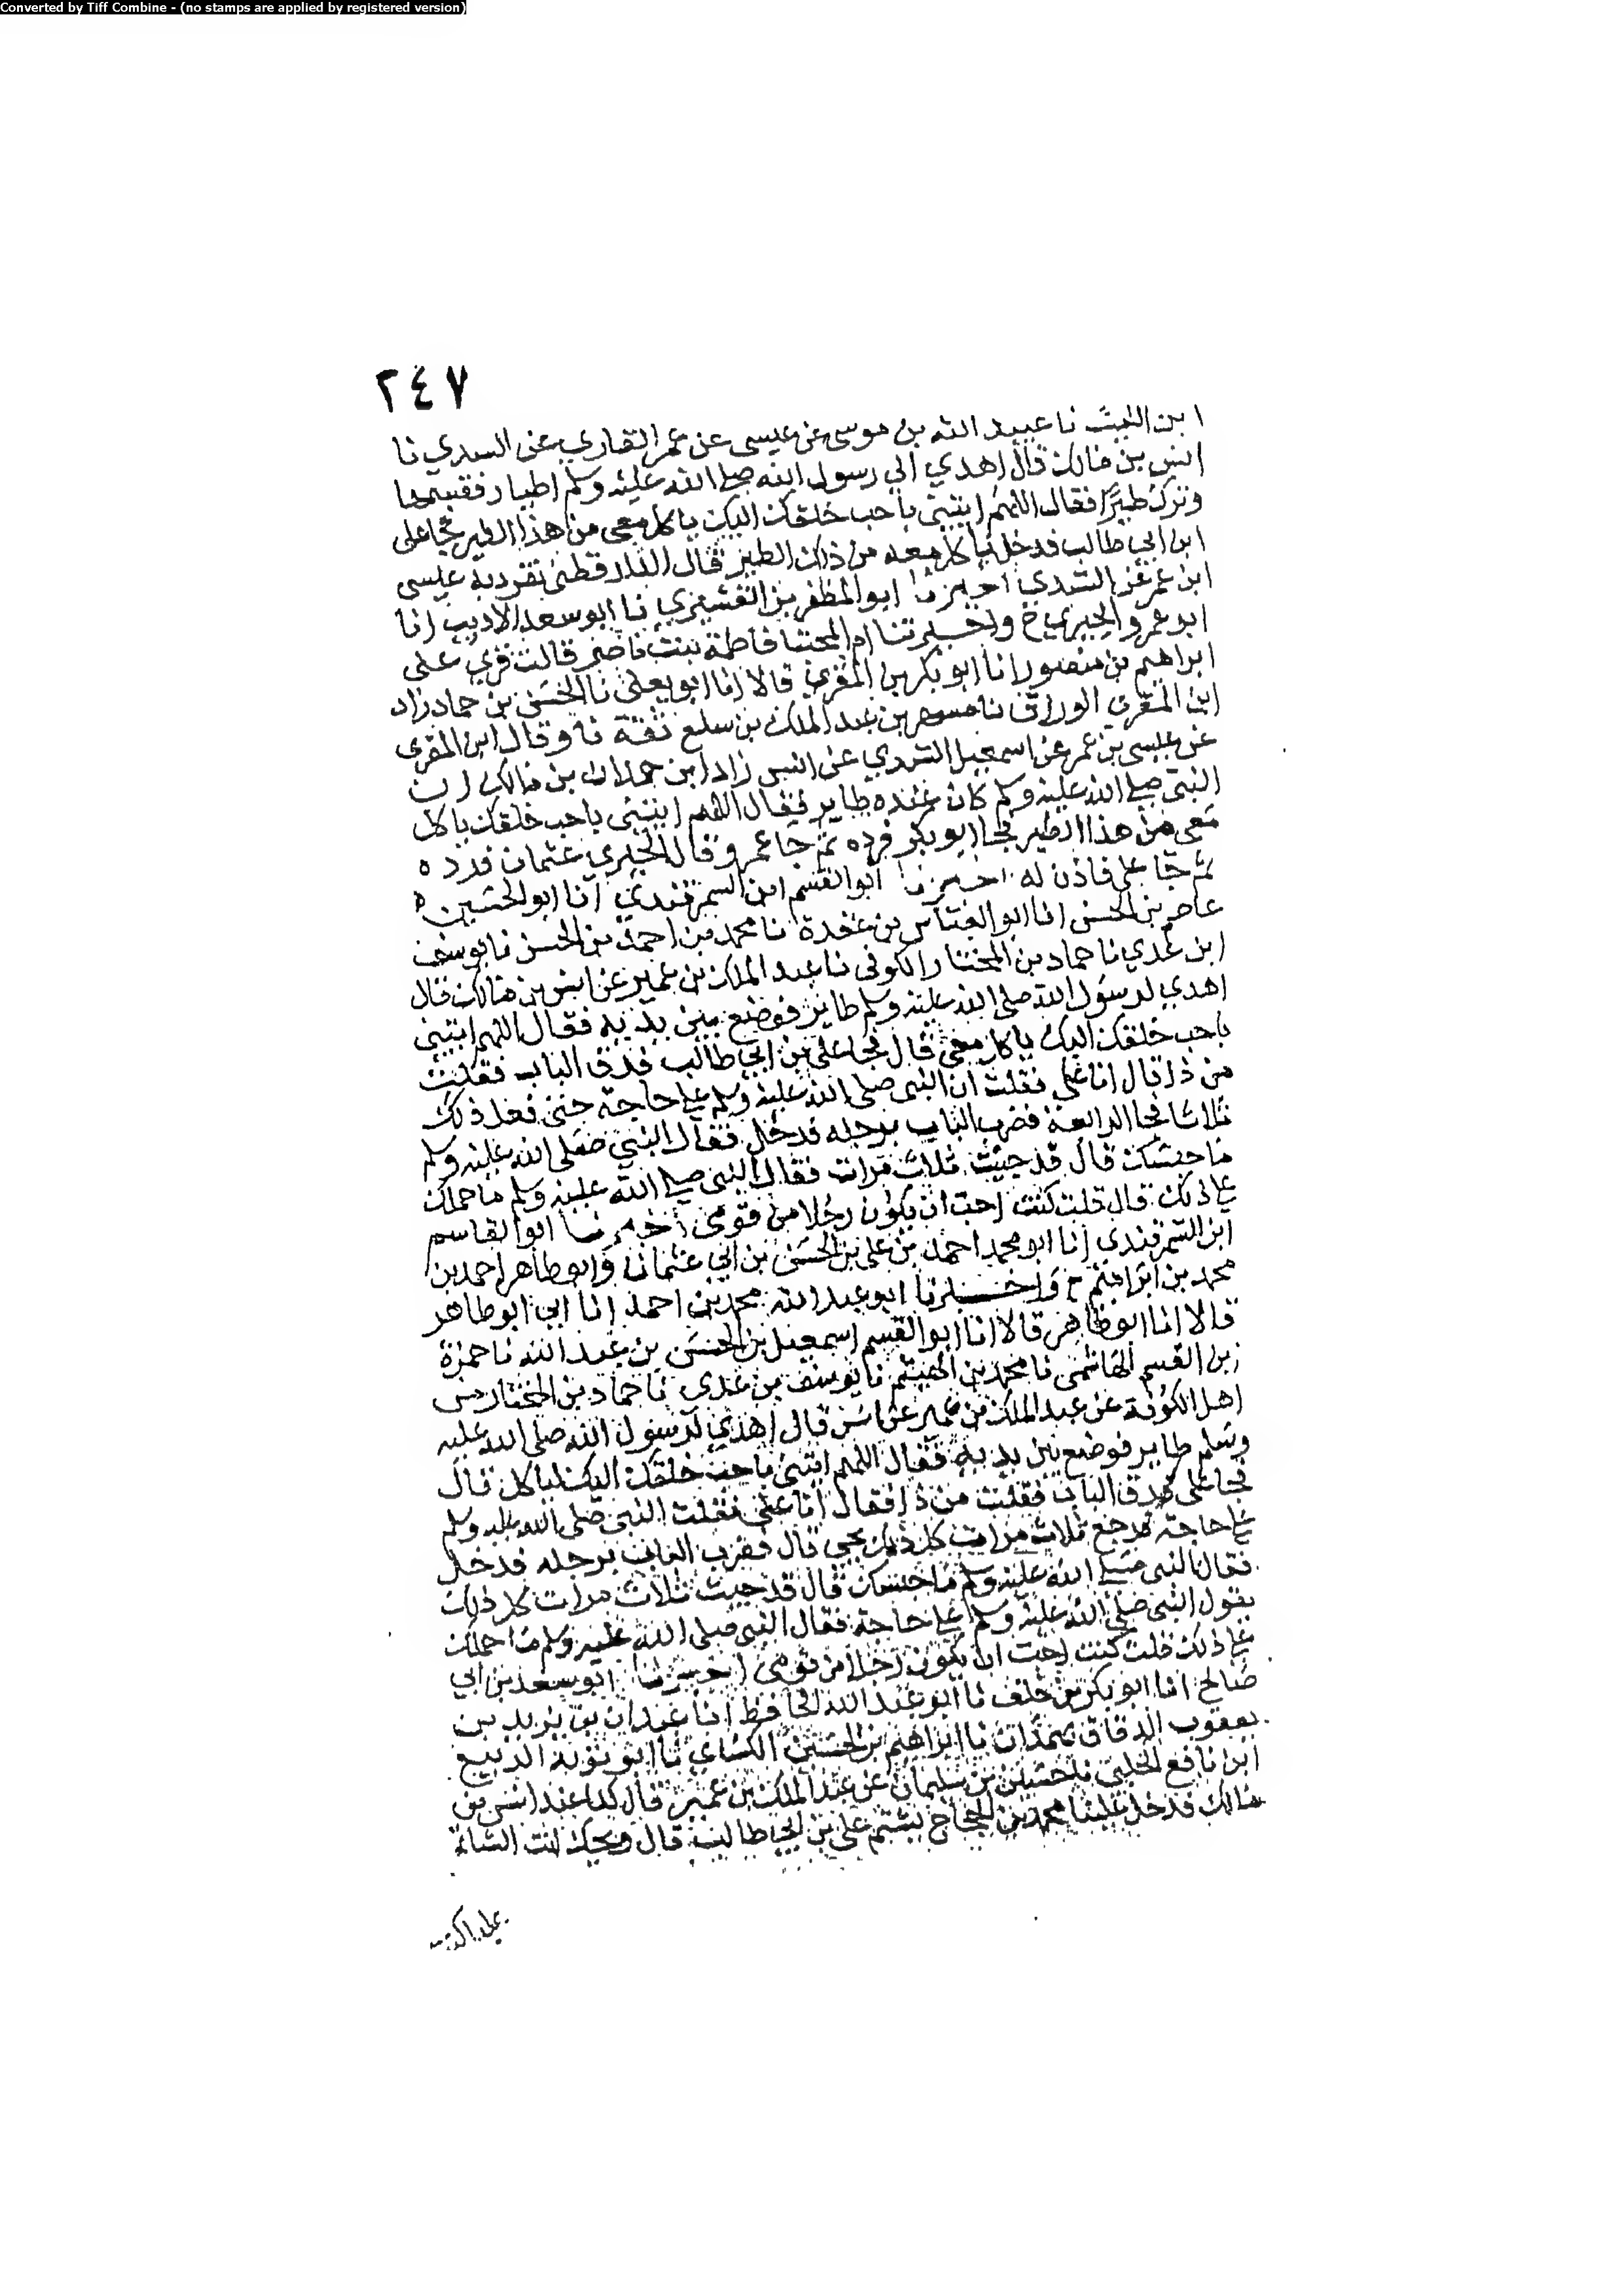 Converted by Tiff Combine - (no stamps are applied by registered version)
٢٤٧
ابن الليث نا عبيد الله بن موسى عن عيسى عن عمر القاري عن السدي نا
انس بن مالك قال اهدي الي رسول الله صلى الله عليه وسلم اطيار فقسمها
وترك طيرا فقال اللهم ايتني باحب خلقك اليك ياكل معي من هذا الطير فجا علي
ابن ابي طالب فدخل ياكل معه من ذلك الطير قال الدارقطني تفرد به عيسى
ابن عمر عن السدي اخبرنا ابو المظفر بن القشيري نا ابو سعد الاديب انا
ابو عمرو الحيري ح واخبرتنا ام المجتبا فاطمة بنت ناصر قالت قري على
ابراهيم بن منصور انا ابو بكر بن المقري قالا انا ابو يعلى نا الحسن بن حماد زاد
ابن المقري الوراق نا مسهر بن عبد الملك بن سلع ثقة نا وقال ابن المقري
عن عيسى بن عمر عن اسمعيل السدي عن انس زاد ابن حمدان بن مالك ان
النبي صلى الله عليه وسلم كان عنده طاير فقال اللهم ايتني باحب خلقك ياكل
معي من هذا الطير فجا ابو بكر فرده ثم جا عمر وقال الحيري عثمان فرده
ثم جا علي فاذن له اخبرنا ابو القسم ابن السمرقندي انا ابو الحسين
عاصم بن الحسن انا ابو العباس بن عقدة نا محمد بن احمد بن الحسن نا يوسف
ابن عدي نا حماد بن المختار الكوفي نا عبد الملك بن عمير عن انس بن مالك قال
اهدي لرسول الله صلى الله عليه وسلم طاير فوضع بين يديه فقال اللهم ايتني
باحب خلقك اليك ياكل معي قال فجا علي بن ابي طالب فدق الباب فقلت
من ذا قال انا علي فقلت ان النبي صلى الله عليه وسلم على حاجة حتى فعل ذلك
ثلاثا فجا الرابعة فضرب الباب برجله فدخل فقال النبي صلى الله عليه وسلم
ما حبسك قال قد جيت ثلاث مرات فقال النبي صلى الله عليه وسلم ما حملك
على ذلك قال قلت كنت احب ان يكون رجلا من قومي اخبرنا ابو القاسم
ابن السمرقندي انا ابو محمد احمد بن علي بن الحسن بن ابي عثمان وابو طاهر احمد بن
محمد بن ابراهيم ح واخبرنا ابو عبد الله محمد بن احمد انا ابي ابو طاهر
قالا انا ابو طاهر قالا انا ابو القسم اسمعيل بن الحسن بن عبد الله نا حمزة
بن القسم الهاشمي نا محمد بن الهيثم نا يوسف بن عدي نا حماد بن المختار من
اهل الكوفة عن عبد الملك بن عمير عن انس قال اهدي لرسول الله صلى الله عليه
وسلم طاير فوضع بين يديه فقال اللهم ايتني باحب خلقك اليك لياكل قال
فجا علي فدق الباب فقلت من ذا فقال انا علي فقلت النبي صلى الله عليه وسلم
على حاجة فرجع ثلاث مرات كل ذلك يجي قال فضرب الباب برجله فدخل
فقال النبي صلى الله عليه وسلم ما حبسك قال قد جيت ثلاث مرات كل ذلك
يقول النبي صلى الله عليه وسلم على حاجة فقال النبي صلى الله عليه وسلم ما حملك
على ذلك قلت كنت احب ان يكون رجلا من قومي اخبرنا ابو سعد بن ابي
صالح انا ابو بكر بن خلف نا ابو عبد الله الحافظ انا عبدان بن يزيد بن
يعقوب الدقاق بهمذان نا ابراهيم بن الحسين الكساي نا ابو توبة الربيع
ابن نافع الحلبي نا حسين بن سليمان عن عبد الملك بن عمير قال كنا عند انس بن
مالك فدخل علينا محمد بن الحجاج يشتم علي بن ابي طالب قال ويحك انت الشاتم